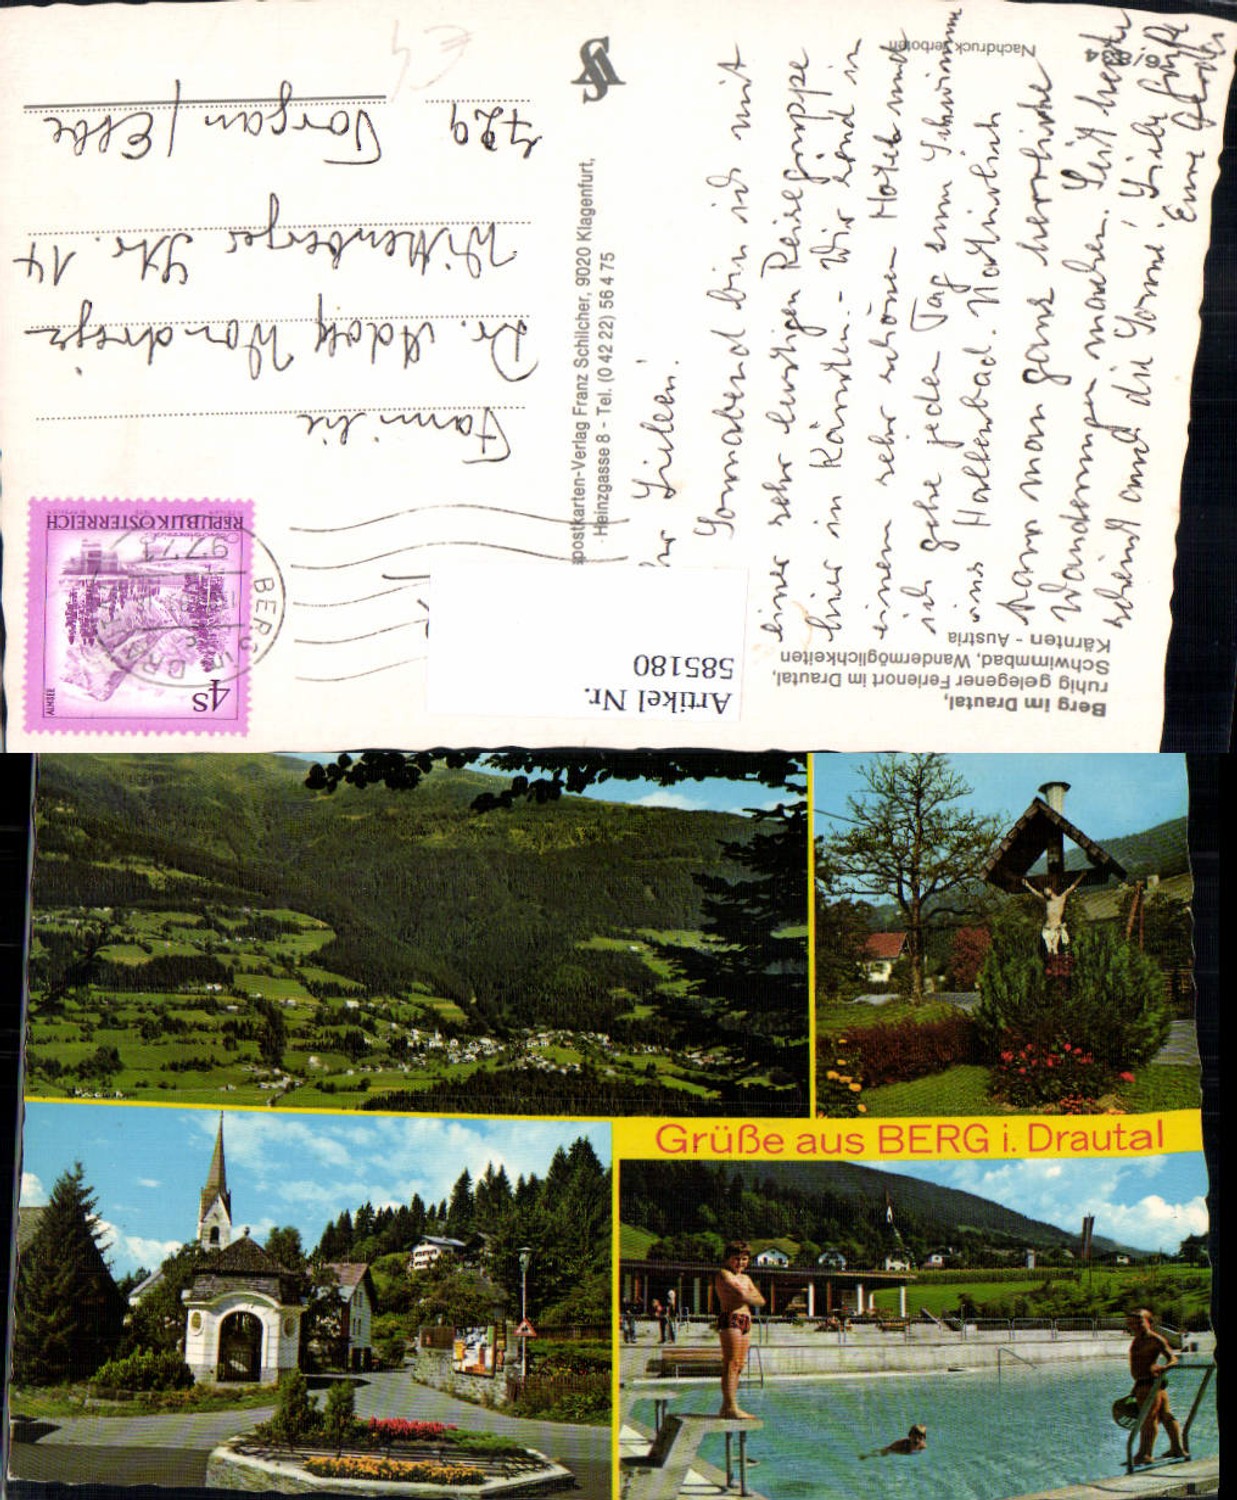 Berg im Drautal,
ruhig gelegener Ferienort im Drautal,
Schwimmbad, Wandermöglichkeiten
Kärnten - Austria
Artikel Nr.
585180
REPUBLIK ÖSTERREICH
4S
ALMSEE
9771
BERG im DRAUTAL
Familie
Dr. Adolf
Wittenberger Str. 14
729 Torgau / Elbe
€4
postkarten-Verlag Franz Schilcher, 9020 Klagenfurt,
Heinzgasse 8 - Tel. (0 42 22) 56 4 75
Nachdruck verboten
Ihr Lieben.
Sonnabend bin ich mit
einer sehr lustigen Reisegruppe
hier in Kärnten. - Wir sind in
einem sehr schönen Hotel und
ich gehe jeden Tag zum Schwimmen
ins Hallenbad. Natürlich
kann man ganz herrliche
Wanderungen machen. Seit heute
scheint auch die Sonne! Liebe Grüße
Eure
Grüße aus BERG i. Drautal